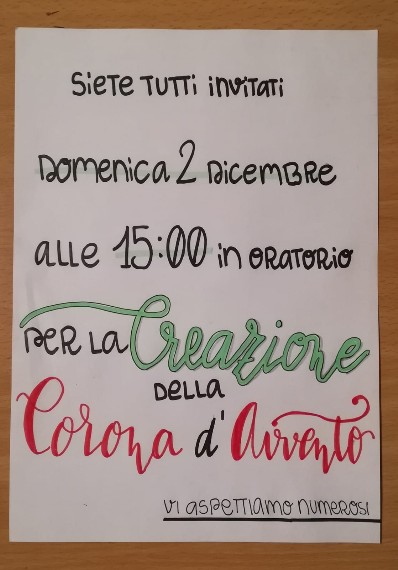 Siete tutti invitati
Domenica 2 Dicembre
alle 15:00 in oratorio
per la Creazione
della
Corona d'Avvento
vi aspettiamo numerosi